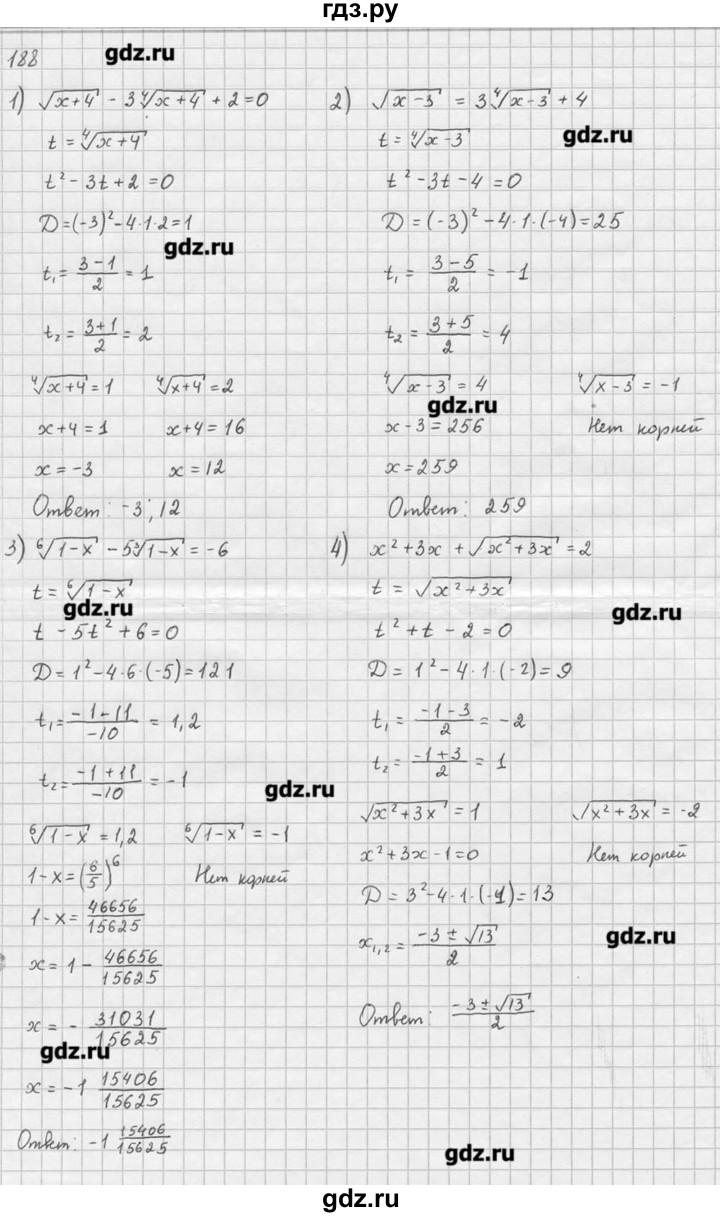 гдз.ру
188
gdz.ru
1) √(x+4) - 3⁴√(x+4) + 2 = 0
t = ⁴√(x+4)
t² - 3t + 2 = 0
D = (-3)² - 4·1·2 = 1
gdz.ru
t₁ = (3-1)/2 = 1
t₂ = (3+1)/2 = 2
⁴√(x+4) = 1   ⁴√(x+4) = 2
x+4 = 1   x+4 = 16
x = -3   x = 12
Ответ: -3; 12
2) √(x-3) = 3⁴√(x-3) + 4
gdz.ru
t = ⁴√(x-3)
t² - 3t - 4 = 0
D = (-3)² - 4·1·(-4) = 25
t₁ = (3-5)/2 = -1
t₂ = (3+5)/2 = 4
⁴√(x-3) = 4   ⁴√(x-3) = -1
gdz.ru
x-3 = 256   Нет корней
x = 259
Ответ: 259
3) ⁶√(1-x) - 5³√(1-x) = -6
t = ⁶√(1-x)
gdz.ru
t - 5t² + 6 = 0
D = 1² - 4·6·(-5) = 121
t₁ = (-1-11)/(-10) = 1,2
t₂ = (-1+11)/(-10) = -1
gdz.ru
⁶√(1-x) = 1,2   ⁶√(1-x) = -1
1-x = (6/5)⁶   Нет корней
1-x = 46656/15625
x = 1 - 46656/15625
x = - 31031/15625
gdz.ru
x = -1 15406/15625
Ответ: -1 15406/15625
4) x² + 3x + √(x²+3x) = 2
t = √(x²+3x)
gdz.ru
t² + t - 2 = 0
D = 1² - 4·1·(-2) = 9
t₁ = (-1-3)/2 = -2
t₂ = (-1+3)/2 = 1
√(x²+3x) = 1   √(x²+3x) = -2
x² + 3x - 1 = 0   Нет корней
D = 3² - 4·1·(-1) = 13
gdz.ru
x₁,₂ = (-3 ± √13)/2
Ответ: (-3 ± √13)/2
gdz.ru
gdz.ru